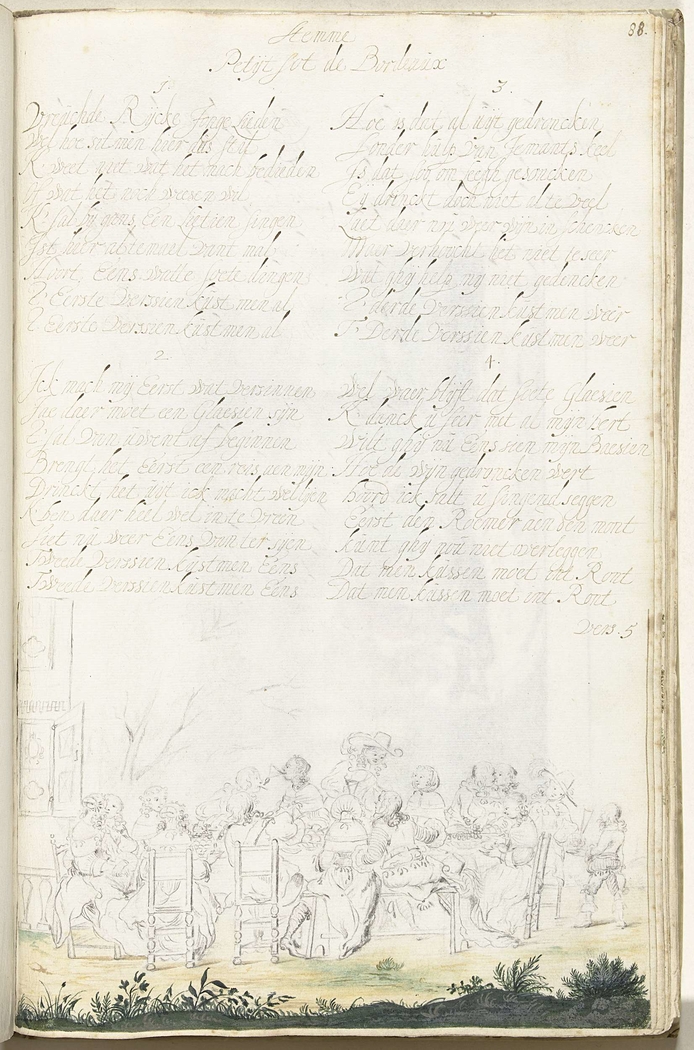 88.
Stemme
Petijt sot de Bordeaux
1.
Vreuchde Rijcke Jonge Lieden
Wel hoe sit men hier dus stil
K weet niet wat het mach bedieden
of wat het noch weesen wil
K Sal vij eens Een Lietien singen
Ist hier altemael want mal
Hoort Eens wat soete dingen
T Eerste Verssien kust men al
T Eerste Verssien kust men al
2.
Ick mach mij Eerst wat versinnen
Siet daer moet een Glaesien sijn
Sal van uwent af beginnen
Brengt het Eerst een reis aen mijn
Drinckt het uijt ick macht wel lijen
K ben daer heel wel in te vreen
Siet nu weer Eens van ter sijen
Tweede Verssien kust men Eens
Tweede Verssien kust men Eens
3.
Hoe is dat al uijt gedroncken
Sonder hulp van Jemants keel
Is dat soo om seegh geschncken
Eij drinckt doch niet al te veel
Laet daer nu weer wijn in schencken
Maer verhaecht het niet te seer
Wat ghij help mij niet gedencken
T derde Verssien kust men weer
T Derde Verssien kust men weer
4.
Wel waer blijft dat soete Glaesien
K danck u seer met al mijn hert
Wilt ghij nu Eens sien mijn Baesien
Hoe de wijn gedroncken wert
Hoord ick salt u singend seggen
Eerst den Roemer aen den mont
kunt ghij nou niet overleggen
Dat men kussen moet int Ront
Dat men kussen moet int Ront
Vers. 5